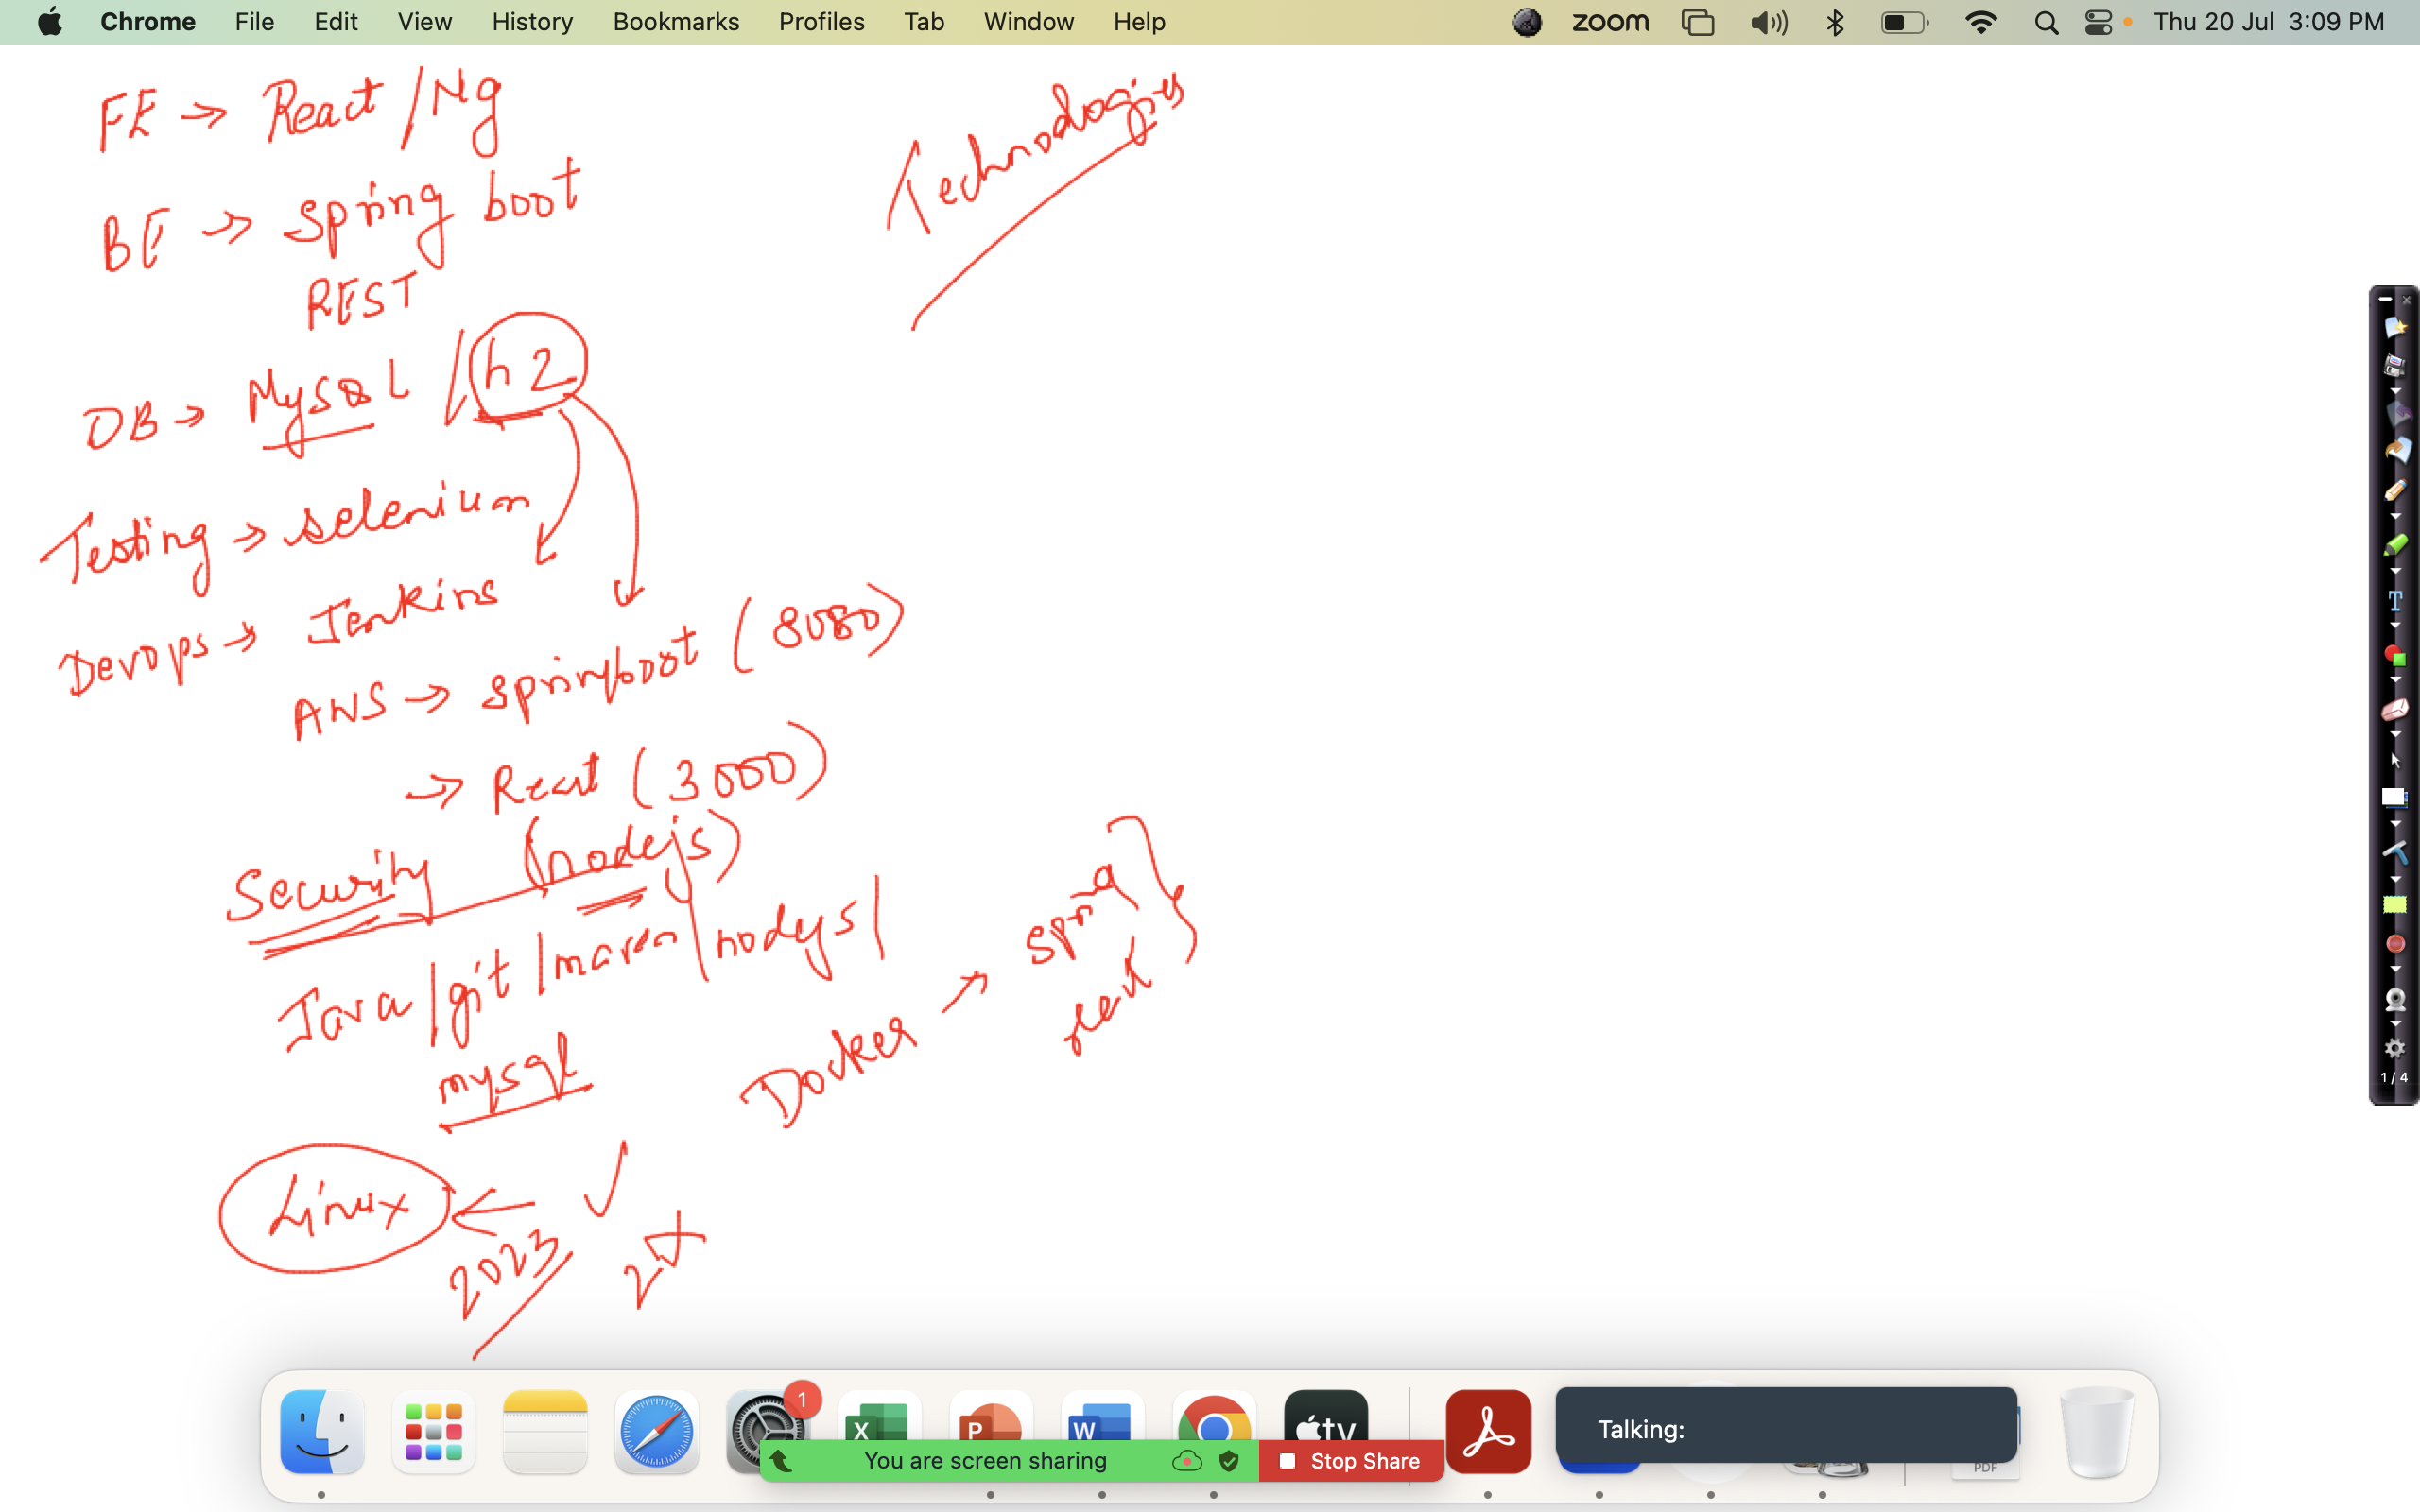 Chrome File Edit View History Bookmarks Profiles Tab Window Help zoom Thu 20 Jul 3:09 PM
FE → React / Ng
Technologies
BE → spring boot
REST
DB → MySQL / h2
Testing → selenium
Devops → Jenkins
AWS → springboot (8080)
→ React (3000)
Security (nodejs)
Java / git / maven / nodejs /
mysql
Docker → Spring
react
Linux ←
2023
T
1 / 4
1
X P W tv
You are screen sharing Stop Share
Talking:
PDF